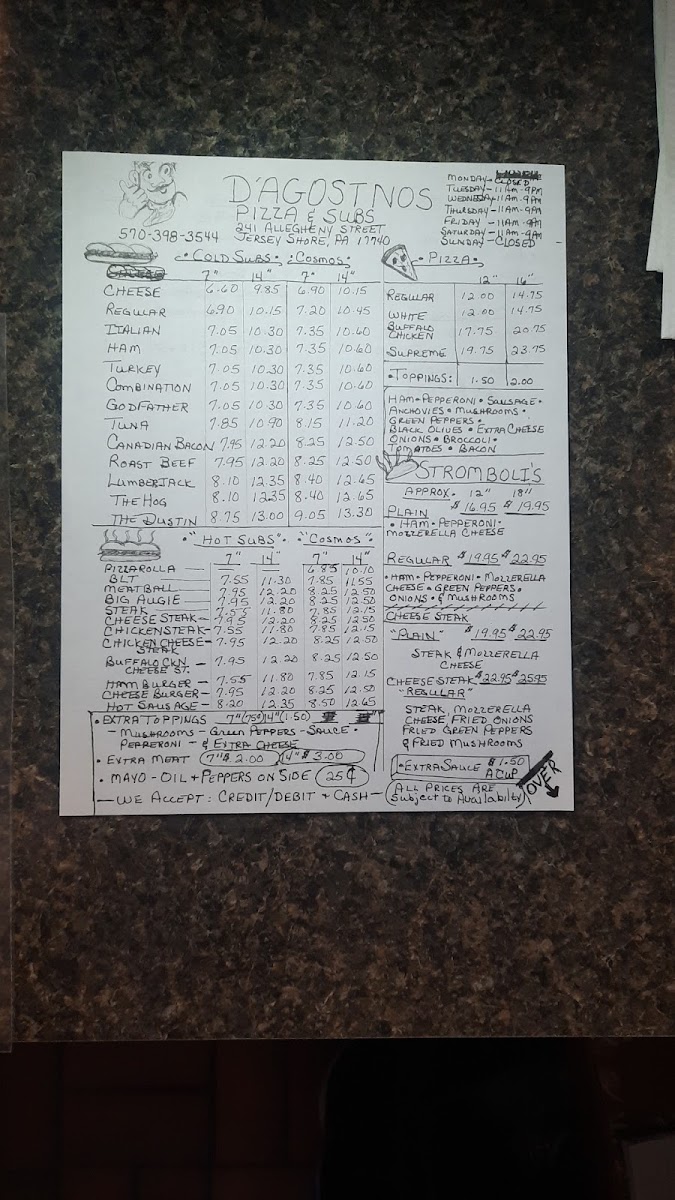 D'AGOSTNOS
PIZZA & SUBS
241 ALLEGHENY STREET
JERSEY SHORE, PA 17740
570-398-3544
MONDAY - CLOSED
TUESDAY - 11AM - 9PM
WEDNESDAY - 11AM - 9PM
THURSDAY - 11AM - 9PM
FRIDAY - 11AM - 9PM
SATURDAY - 11AM - 9PM
SUNDAY - CLOSED
• COLD SUBS • : COSMOS •
7" 14" 7" 14"
CHEESE 6.60 9.85 6.90 10.15
REGULAR 6.90 10.15 7.20 10.45
ITALIAN 7.05 10.30 7.35 10.60
HAM 7.05 10.30 7.35 10.60
TURKEY 7.05 10.30 7.35 10.60
COMBINATION 7.05 10.30 7.35 10.60
GODFATHER 7.05 10.30 7.35 10.60
TUNA 7.85 10.90 8.15 11.20
CANADIAN BACON 7.95 12.20 8.25 12.50
ROAST BEEF 7.95 12.20 8.25 12.50
LUMBERJACK 8.10 12.35 8.40 12.65
THE HOG 8.10 12.35 8.40 12.65
THE DUSTIN 8.75 13.00 9.05 13.30
• "HOT SUBS" • "COSMOS"
7" 14" 7" 14"
PIZZAROLLA — 6.85 10.10
BLT — 7.55 11.30 7.85 11.55
MEATBALL — 7.95 12.20 8.25 12.50
BIG AUGIE — 7.95 12.20 8.25 12.50
STEAK — 7.55 11.80 7.85 12.15
CHEESE STEAK — 7.95 12.20 8.25 12.50
CHICKEN STEAK — 7.55 11.80 7.85 12.15
CHICKEN CHEESE — 7.95 12.20 8.25 12.50
STEAK
BUFFALO CKN — 7.95 12.20 8.25 12.50
CHEESE ST.
HAM BURGER — 7.55 11.80 7.85 12.15
CHEESE BURGER — 7.95 12.20 8.25 12.50
HOT SAUSAGE — 8.20 12.35 8.50 12.65
• EXTRA TOPPINGS 7" (75¢) 14" (1.50)
— MUSHROOMS - GREEN PEPPERS - SAUCE -
PEPPERONI - & EXTRA CHEESE
• EXTRA MEAT 7" $2.00 14" $3.00
• MAYO - OIL + PEPPERS ON SIDE 25¢
— WE ACCEPT: CREDIT/DEBIT + CASH —
• PIZZA •
12" 16"
REGULAR 12.00 14.75
WHITE 12.00 14.75
BUFFALO
CHICKEN 17.75 20.75
• SUPREME 19.75 23.75
• TOPPINGS: 1.50 2.00
HAM • PEPPERONI • SAUSAGE •
ANCHOVIES • MUSHROOMS •
GREEN PEPPERS •
BLACK OLIVES • EXTRA CHEESE
ONIONS • BROCCOLI •
TOMATOES • BACON
STROMBOLI'S
APPROX. 12" 18"
PLAIN $16.95 $19.95
• HAM - PEPPERONI -
MOZZERELLA CHEESE
REGULAR $19.95 $22.95
• HAM • PEPPERONI • MOZZERELLA
CHEESE • GREEN PEPPERS •
ONIONS • & MUSHROOMS
CHEESE STEAK
"PLAIN" $19.95 $22.95
STEAK & MOZZERELLA
CHEESE
CHEESE STEAK $22.95 $25.95
"REGULAR"
STEAK, MOZZERELLA
CHEESE, FRIED ONIONS
FRIED GREEN PEPPERS
& FRIED MUSHROOMS
• EXTRA SAUCE $1.50
A CUP
ALL PRICES ARE
SUBJECT TO AVAILABILITY
OVER